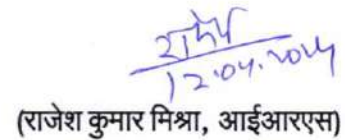 राजेश
12.04.2024
(राजेश कुमार मिश्रा, आईआरएस)